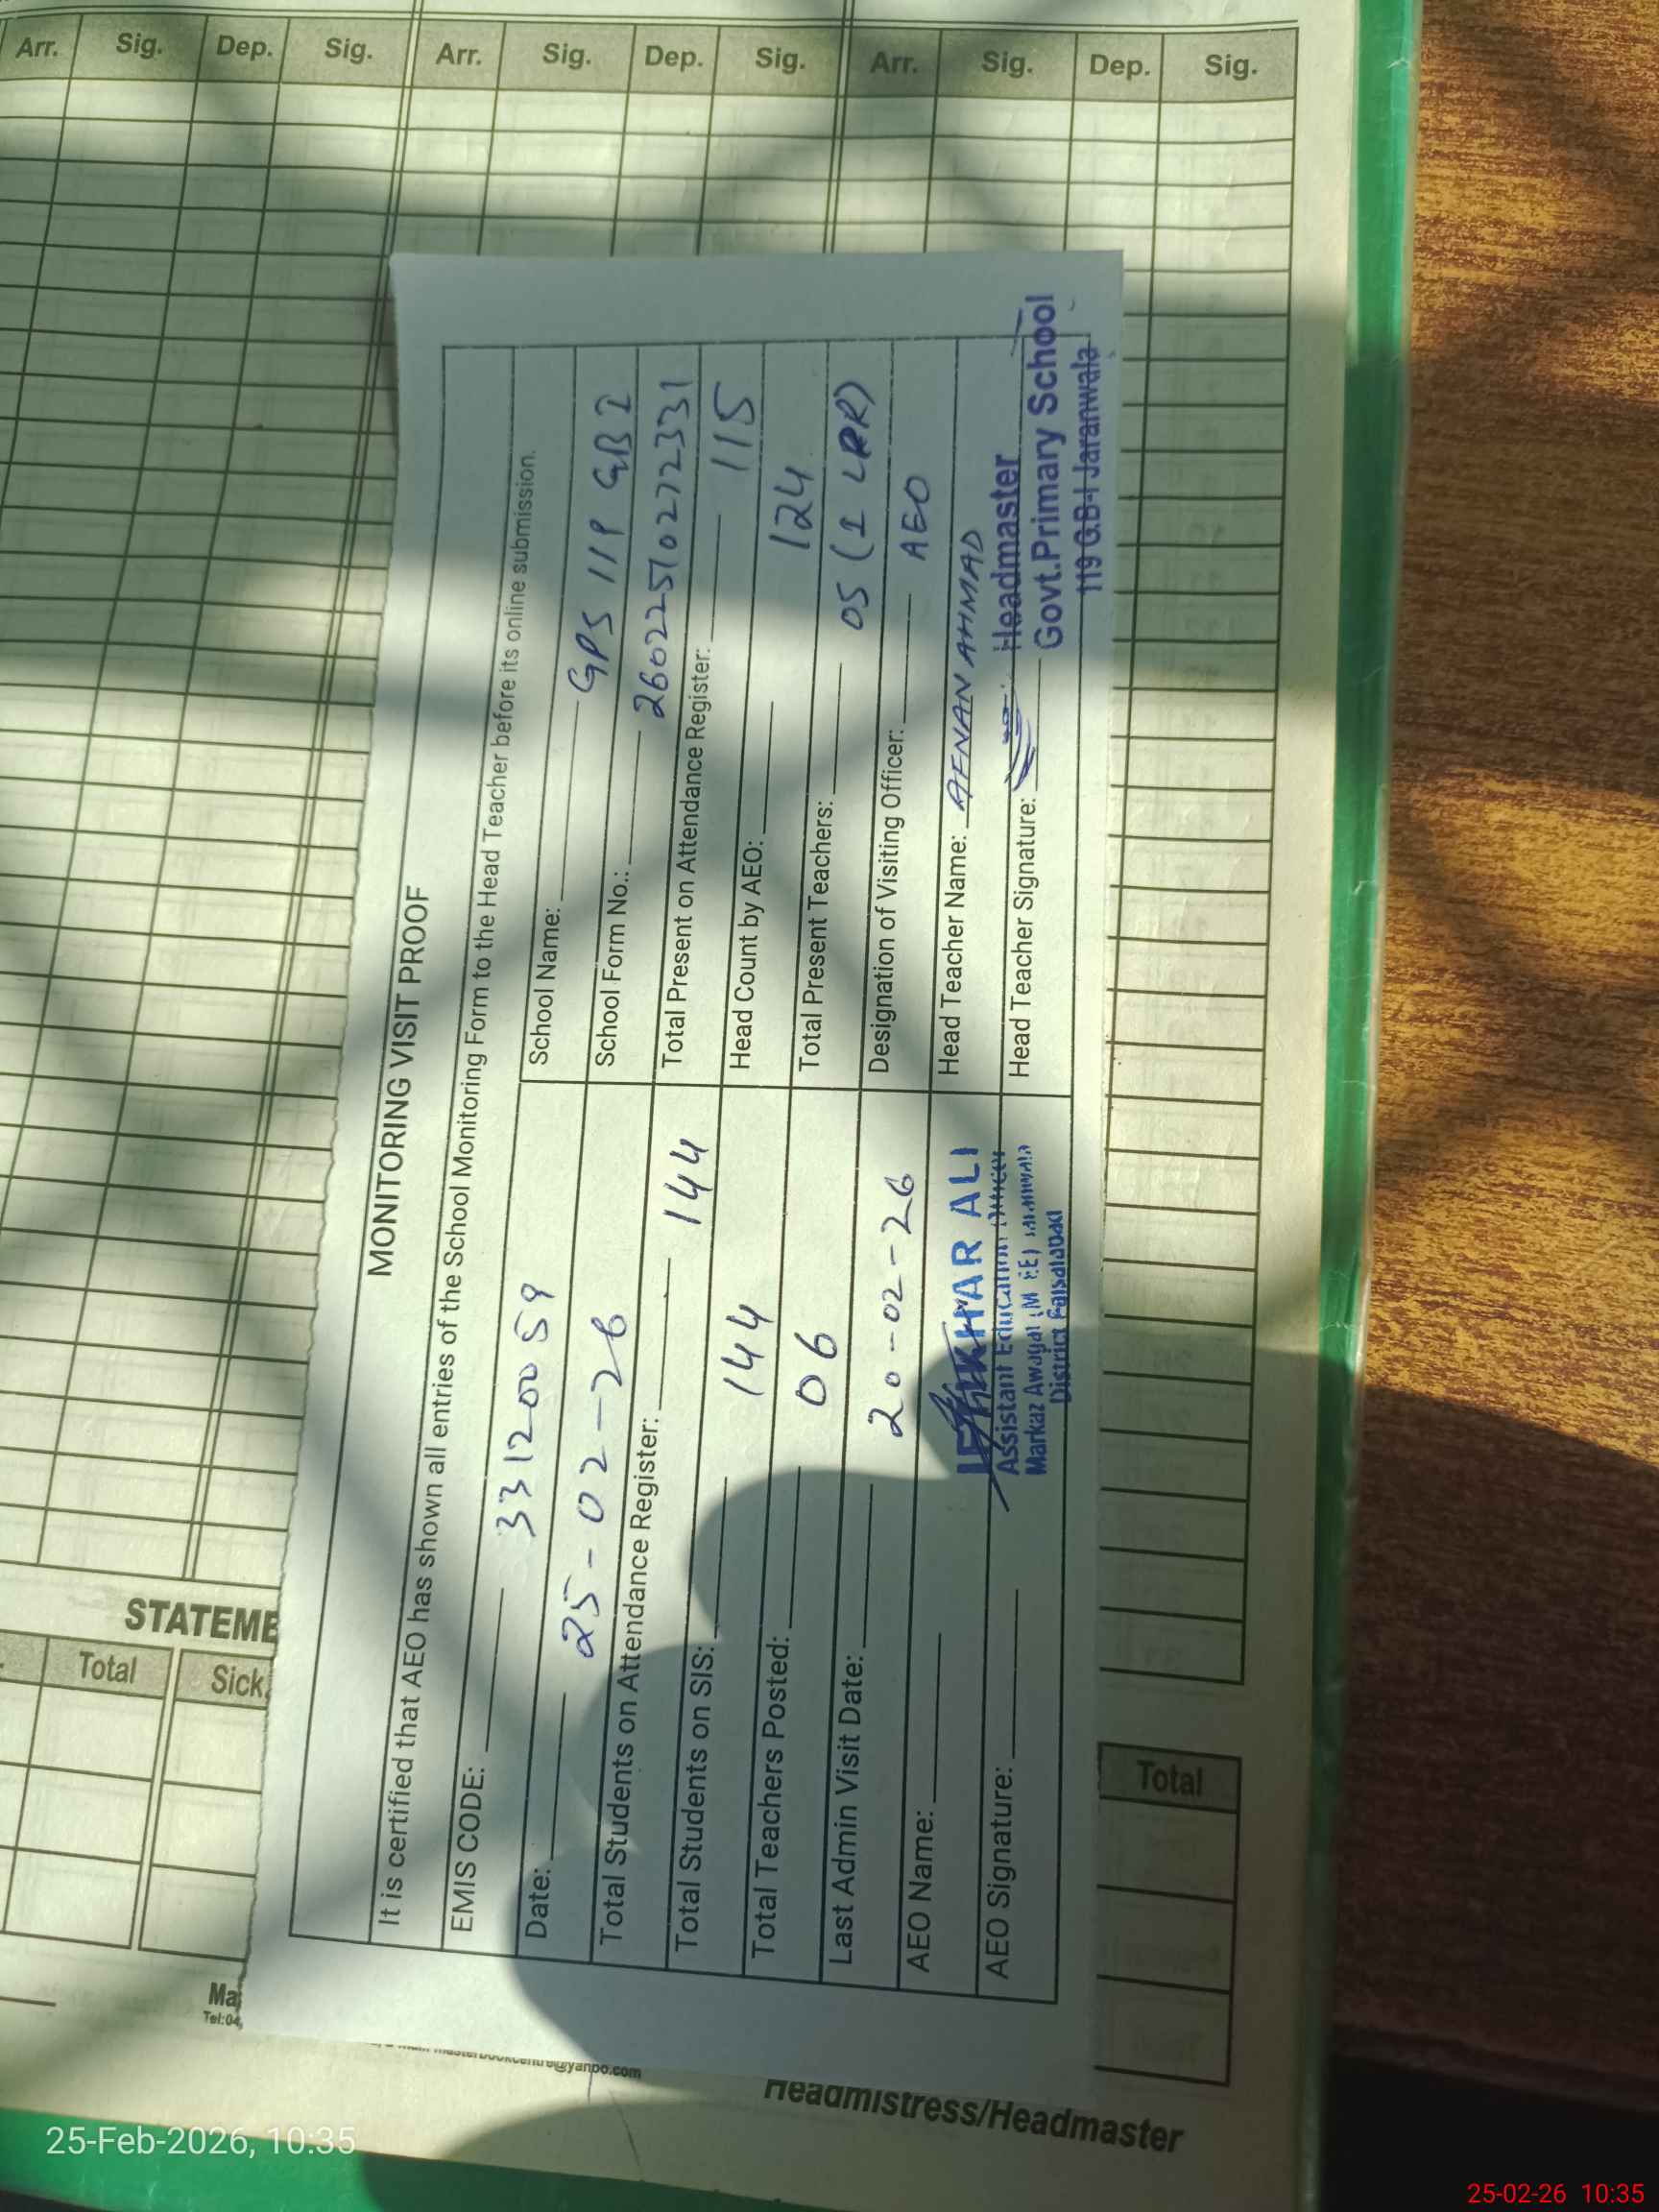 Arr. Sig. Dep. Sig. Arr. Sig. Dep. Sig. Arr. Sig. Dep. Sig.
MONITORING VISIT PROOF
It is certified that AEO has shown all entries of the School Monitoring Form to the Head Teacher before its online submission.
EMIS CODE: 33120059
School Name: GPS 119 GB I
Date: 25-02-26
School Form No.: 26022510272331
Total Students on Attendance Register: 144
Total Present on Attendance Register: 115
Total Students on SIS: 144
Head Count by AEO: 124
Total Teachers Posted: 06
Total Present Teachers: 05 (1 LRR)
Last Admin Visit Date: 20-02-26
Designation of Visiting Officer: AEO
AEO Name: IFTIKHAR ALI
Head Teacher Name: AFNAN AHMAD
AEO Signature:
Assistant Education Officer
Markaz Awagat
District Faisalabad
Head Teacher Signature:
Headmaster
Govt.Primary School
119 G.B-I Jaranwala
STATEME
Total Sick
Total
Ma
Tel:04
Headmistress/Headmaster
25-Feb-2026, 10:35
25-02-26 10:35